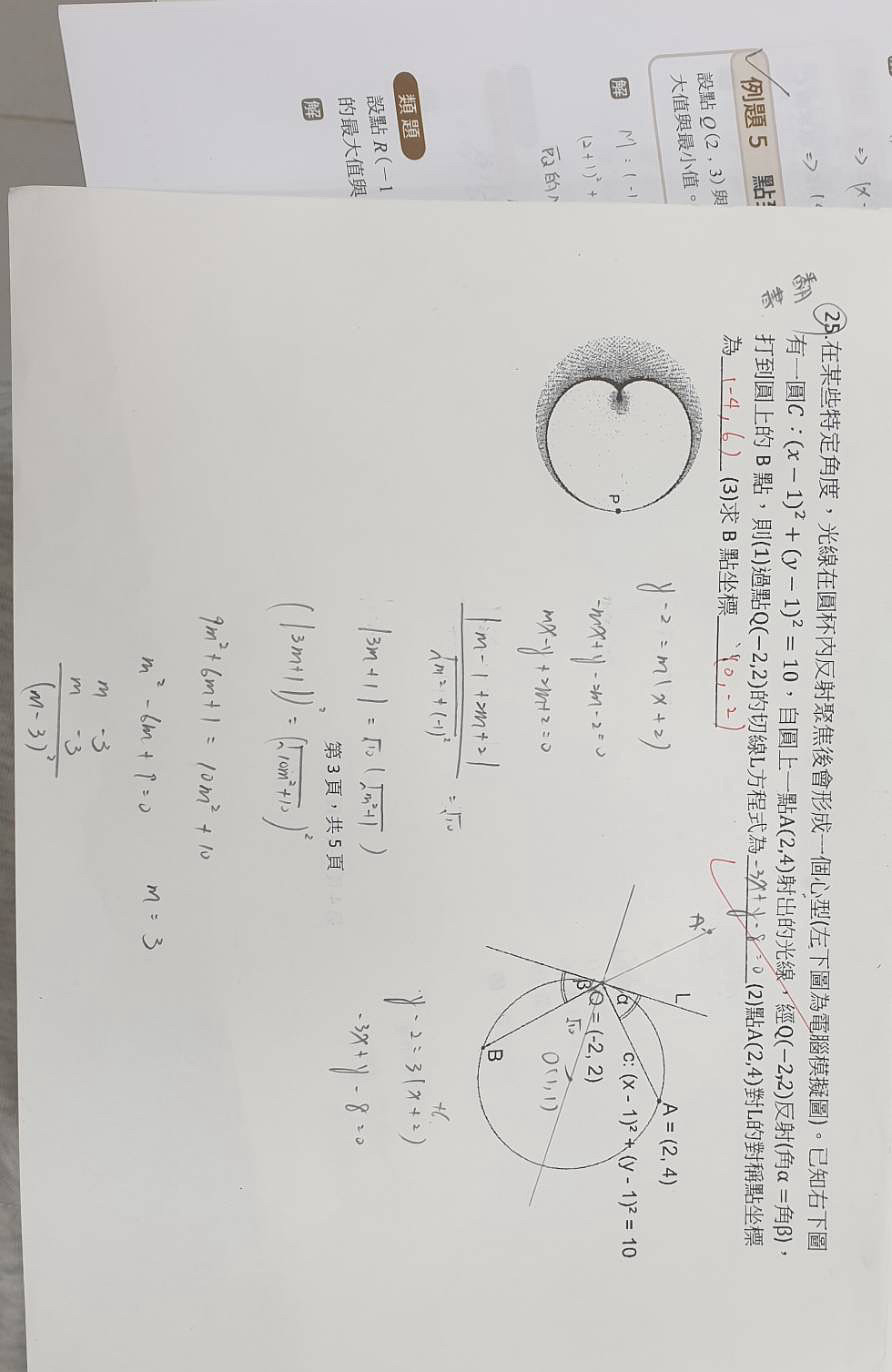 => (x-
=> (
例題 5 點
設點 Q(2, 3) 與
大值與最小值。
解
M : (-1
(2+1)² +
類題
設點 R(-1
的最大值與
解
25.在某些特定角度，光線在圓杯內反射聚焦後會形成一個心型(左下圖為電腦模擬圖)。已知右下圖
有一圓C：(x − 1)² + (y − 1)² = 10，自圓上一點A(2,4)射出的光線，經Q(−2,2)反射(角α =角β)，
打到圓上的 B 點，則(1)過點Q(−2,2)的切線L方程式為 -3x+y-8=0 (2)點A(2,4)對L的對稱點坐標
為 (-4, 6) (3)求 B 點坐標 (0, -2)
P
y-2 = m(x+2)
-mx+y-2m-2=0
mx-y+2m+2=0
|m-1+2m+2|
√m²+(-1)²
= √10
|3m+1| = √10 (√m²+1)
(|3m+1|)² = (√10m²+10)²
9m²+6m+1 = 10m²+10
m²-6m+9=0 m=3
m -3
m -3
(m-3)²
A'
L
A = (2, 4)
α
C: (x - 1)² + (y - 1)² = 10
Q = (-2, 2)
β
√10
O(1,1)
B
+6
y-2=3(x+2)
-3x+y-8=0
第 3 頁，共 5 頁